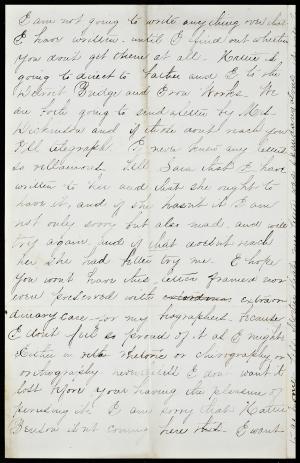 I am not going to write anything now that
I have written - until I find out whether
you dont get them at all. Hattie is
going to direct to Father and I to the
Detroit Bridge and Iron Works. We
are both going to send a letter by Mrs.
Dickinson and if those dont reach you
I'll telegraph. I never knew any letters
so villainous. Tell Sara that I have
written to her and that she ought to
have it, and if she hasnt it I am
not only sorry but also mad, and will
try again, and if that doesnt reach
her she had better try me. I hope
you wont have this letter framed nor
even preserved with extraor
dinary care - for my biographers - because
I dont feel so proud of it as I might
Either in Rhetoric or Chirography or
orthography nevertheless I dont want it
lost before your having the pleasure of
perusing it. I am sorry that Hattie
Benson isnt coming here. I want